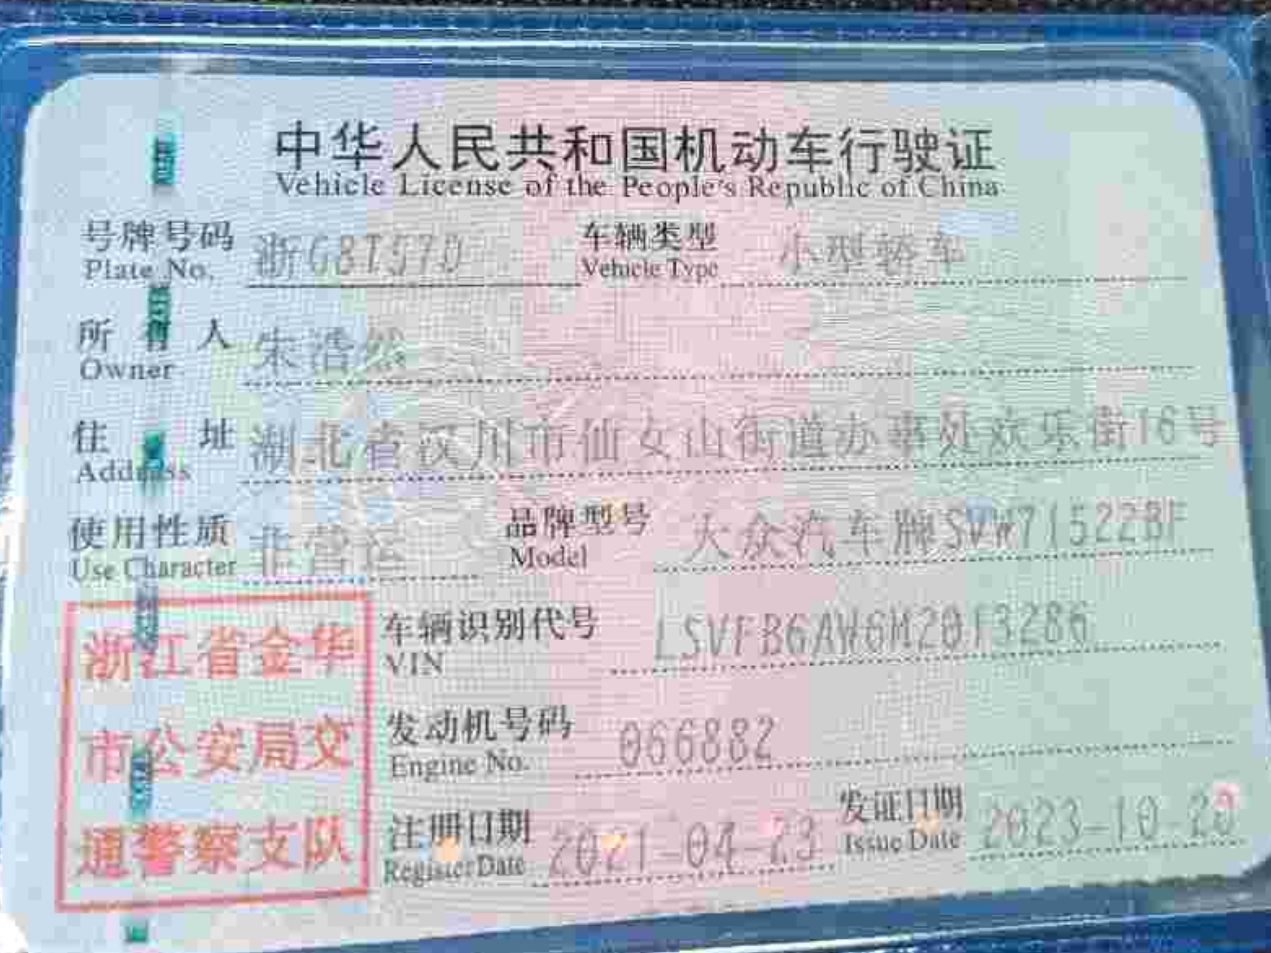 中华人民共和国机动车行驶证
Vehicle License of the People's Republic of China
号牌号码 浙G8T57D 车辆类型 小型轿车
Plate No. Vehicle Type
所有人 朱浩然
Owner
住址 湖北省汉川市仙女山街道办事处欢乐街16号
Address
使用性质 非营运 品牌型号 大众汽车牌SVW71522BF
Use Character Model
浙江省金华
市公安局交
通警察支队
车辆识别代号 LSVFB6AW6M2013286
VIN
发动机号码 066882
Engine No.
注册日期 2021-04-23 发证日期 2023-10-20
Register Date Issue Date